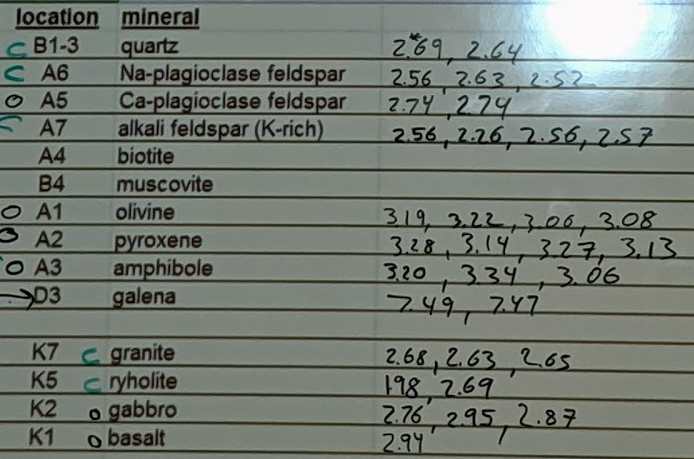 location mineral
C B1-3 quartz 2.*69, 2.64
C A6 Na-plagioclase feldspar 2.56, 2.63, 2.52
O A5 Ca-plagioclase feldspar 2.74, 2.74
C A7 alkali feldspar (K-rich) 2.56, 2.26, 2.56, 2.57
A4 biotite
B4 muscovite
O A1 olivine 3.19, 3.22, 3.06, 3.08
O A2 pyroxene 3.28, 3.14, 3.27, 3.13
O A3 amphibole 3.20, 3.34, 3.06
→D3 galena 7.49, 7.47
K7 C granite 2.68, 2.63, 2.65
K5 C ryholite 1.98, 2.69
K2 O gabbro 2.76, 2.95, 2.87
K1 O basalt 2.94